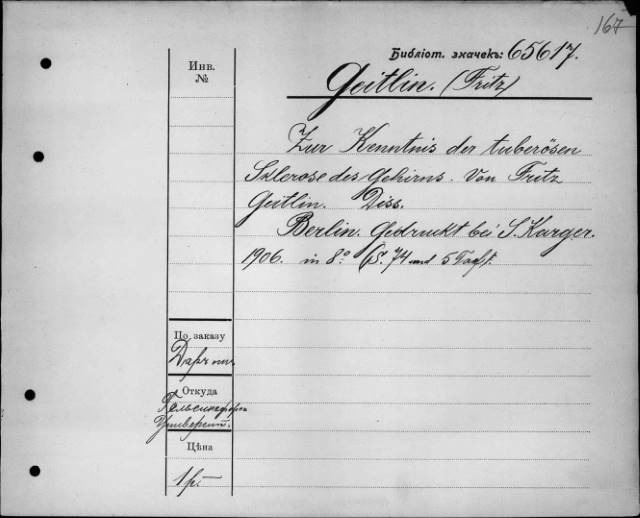 167
Библіот. значекъ: 65617.
Инв.
№
Geitlin. (Fritz)
Zur Kenntnis der tuberösen
Sklerose des Gehirns. Von Fritz
Geitlin. Diss.
Berlin. Gedruckt bei S. Karger.
1906. in 8º (S. 74 und 5 Taf).
По заказу
Даръ
Откуда
Гельсингфорс
Университ.
Цѣна
1 р. —